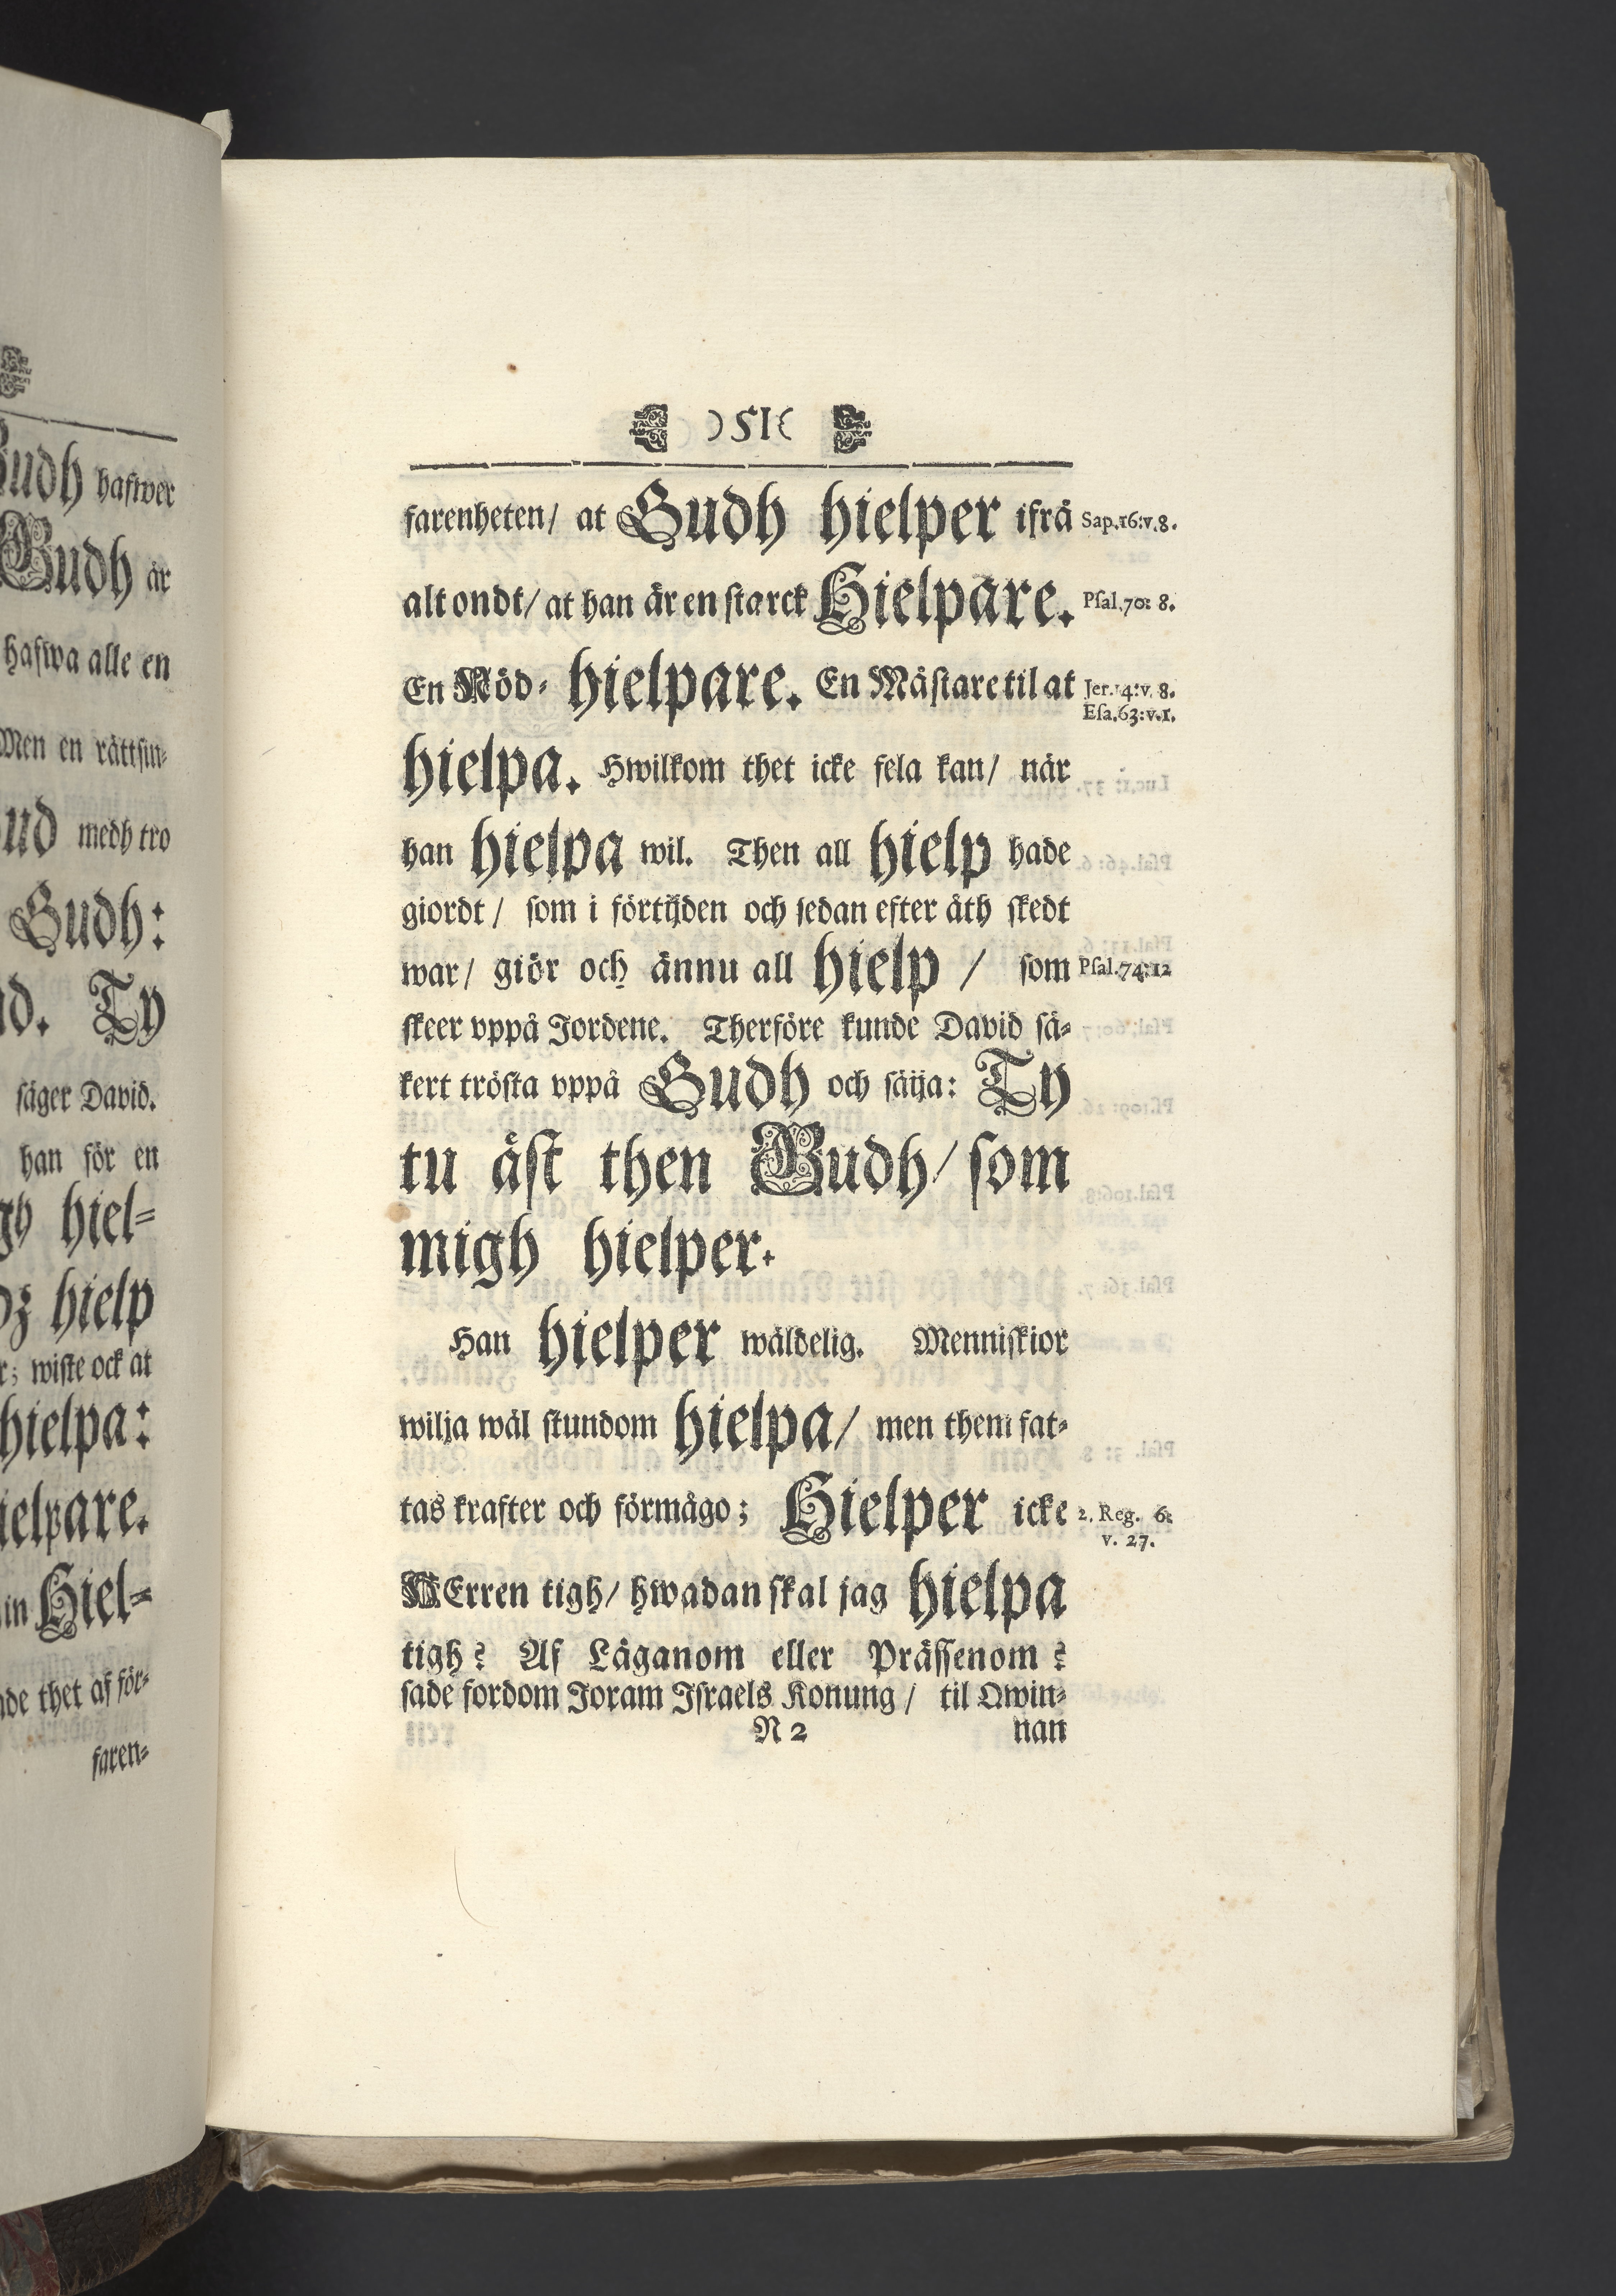 udh hafwer
Gudh är
hafwa alle en
Men en rättsin-
ud medh tro
Gudh:
d. Ty
säger David.
han för en
gh hiel-
hielp
r; wiste ock at
hielpa:
ielpare.
in Hiel-
de thet af för-
faren-
)51(
farenheten/ at Gudh hielper ifrå
Sap.16:v.8.
alt ondt/ at han är en starck Hielpare.
Psal.70: 8.
En Nöd-hielpare. En Mästare til at
Jer.14:v.8.
Esa.63:v.1.
hielpa. Hwilkom thet icke fela kan/ när
han hielpa wil. Then all hielp hade
giordt/ som i förtijden och sedan efter åth skedt
war/ giör och ännu all hielp / som
Psal.74:12
skeer vppå Jordene. Therföre kunde David sä-
kert trösta vppå Gudh och säija: Ty
tu äst then Gudh/ som
migh hielper.
Han hielper wäldelig. Menniskior
wilja wäl stundom hielpa/ men them fat-
tas krafter och förmågo; Hielper icke
2. Reg. 6:
v. 27.
HErren tigh/ hwadan skal jag hielpa
tigh? Af Låganom eller Prässenom?
sade fordom Joram Israels Konung/ til Qwin-
N 2
nan